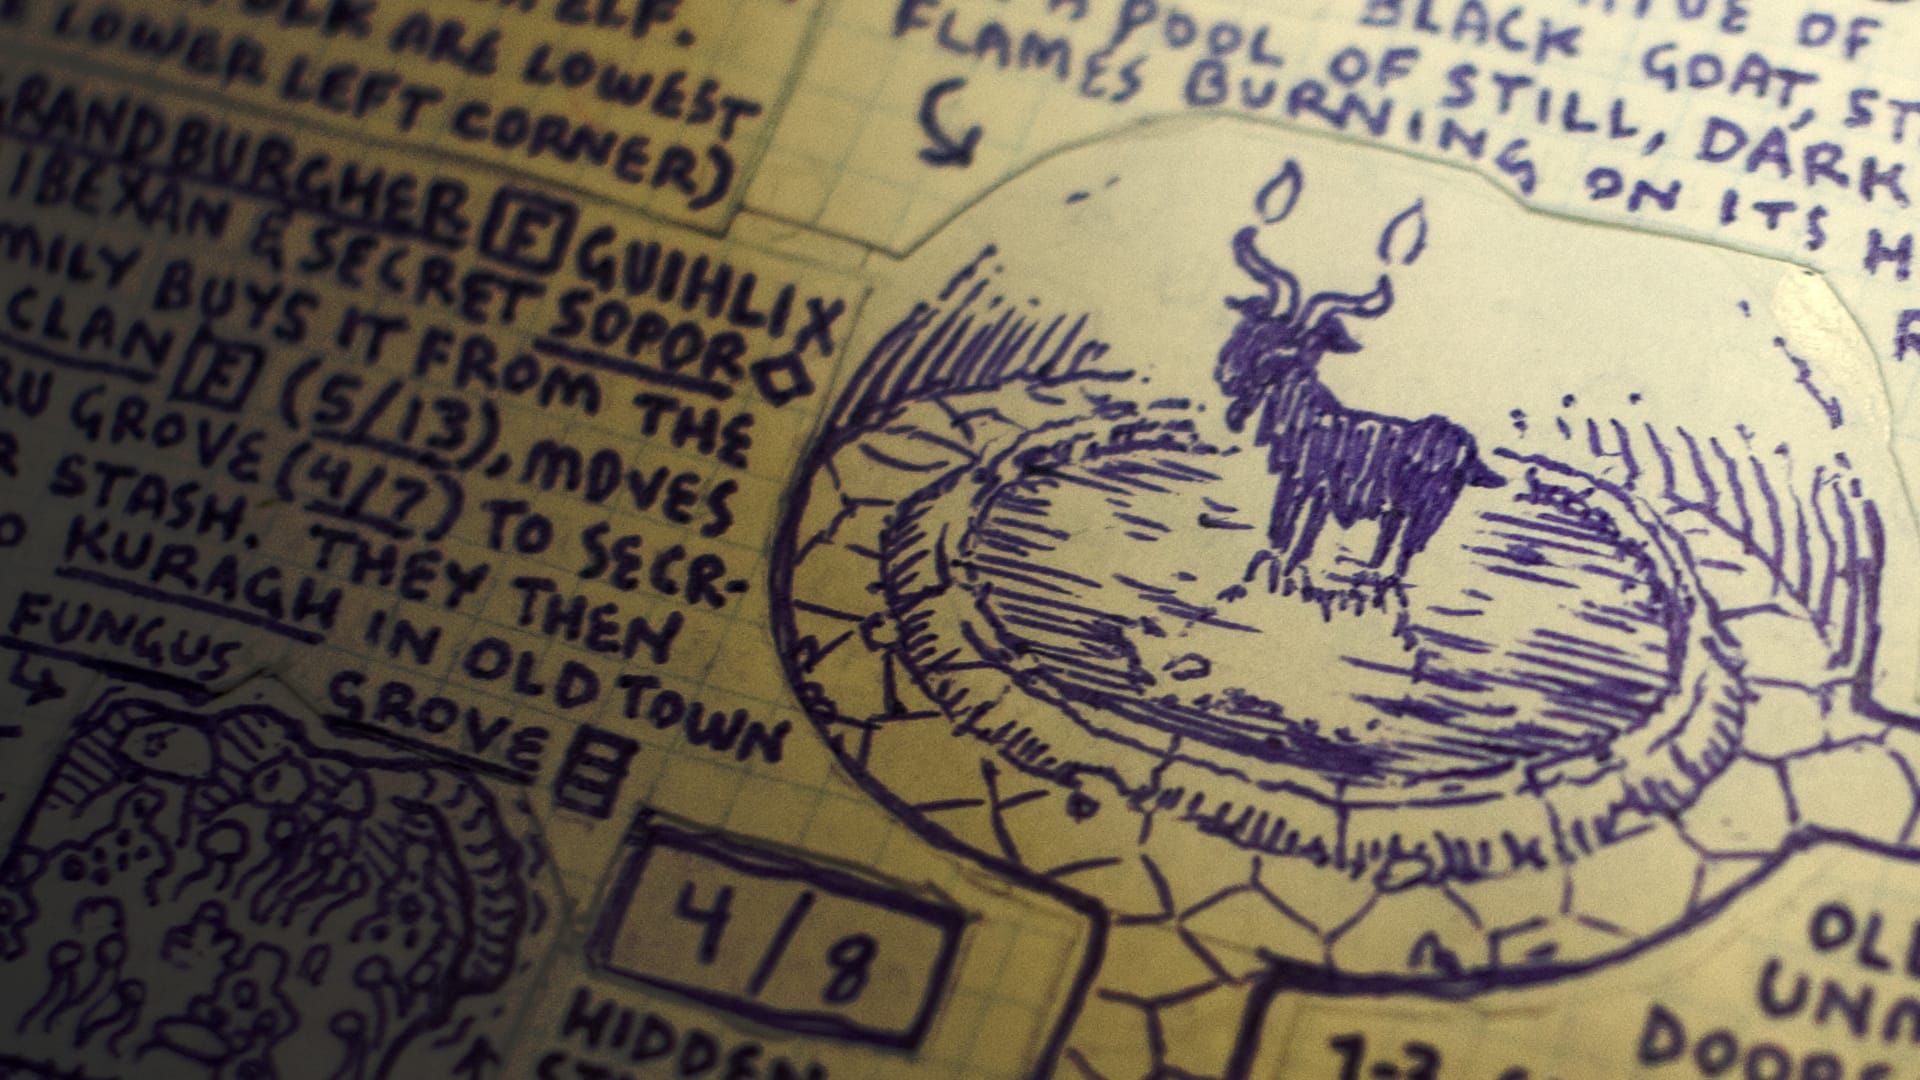 ELF.
ARE LOWEST
LOWER LEFT CORNER)
GRANDBURGHER E GUIHLIX
IBEXAN & SECRET SOPOR
BUYS IT FROM THE
CLAN E (5/13), MOVES
GROVE (4/7) TO SECR-
STASH. THEY THEN
KURAGH IN OLD TOWN
FUNGUS
GROVE
4/8
HIDDEN
OF
BLACK GOAT,
POOL OF STILL, DARK
FLAMES BURNING ON ITS
1-2